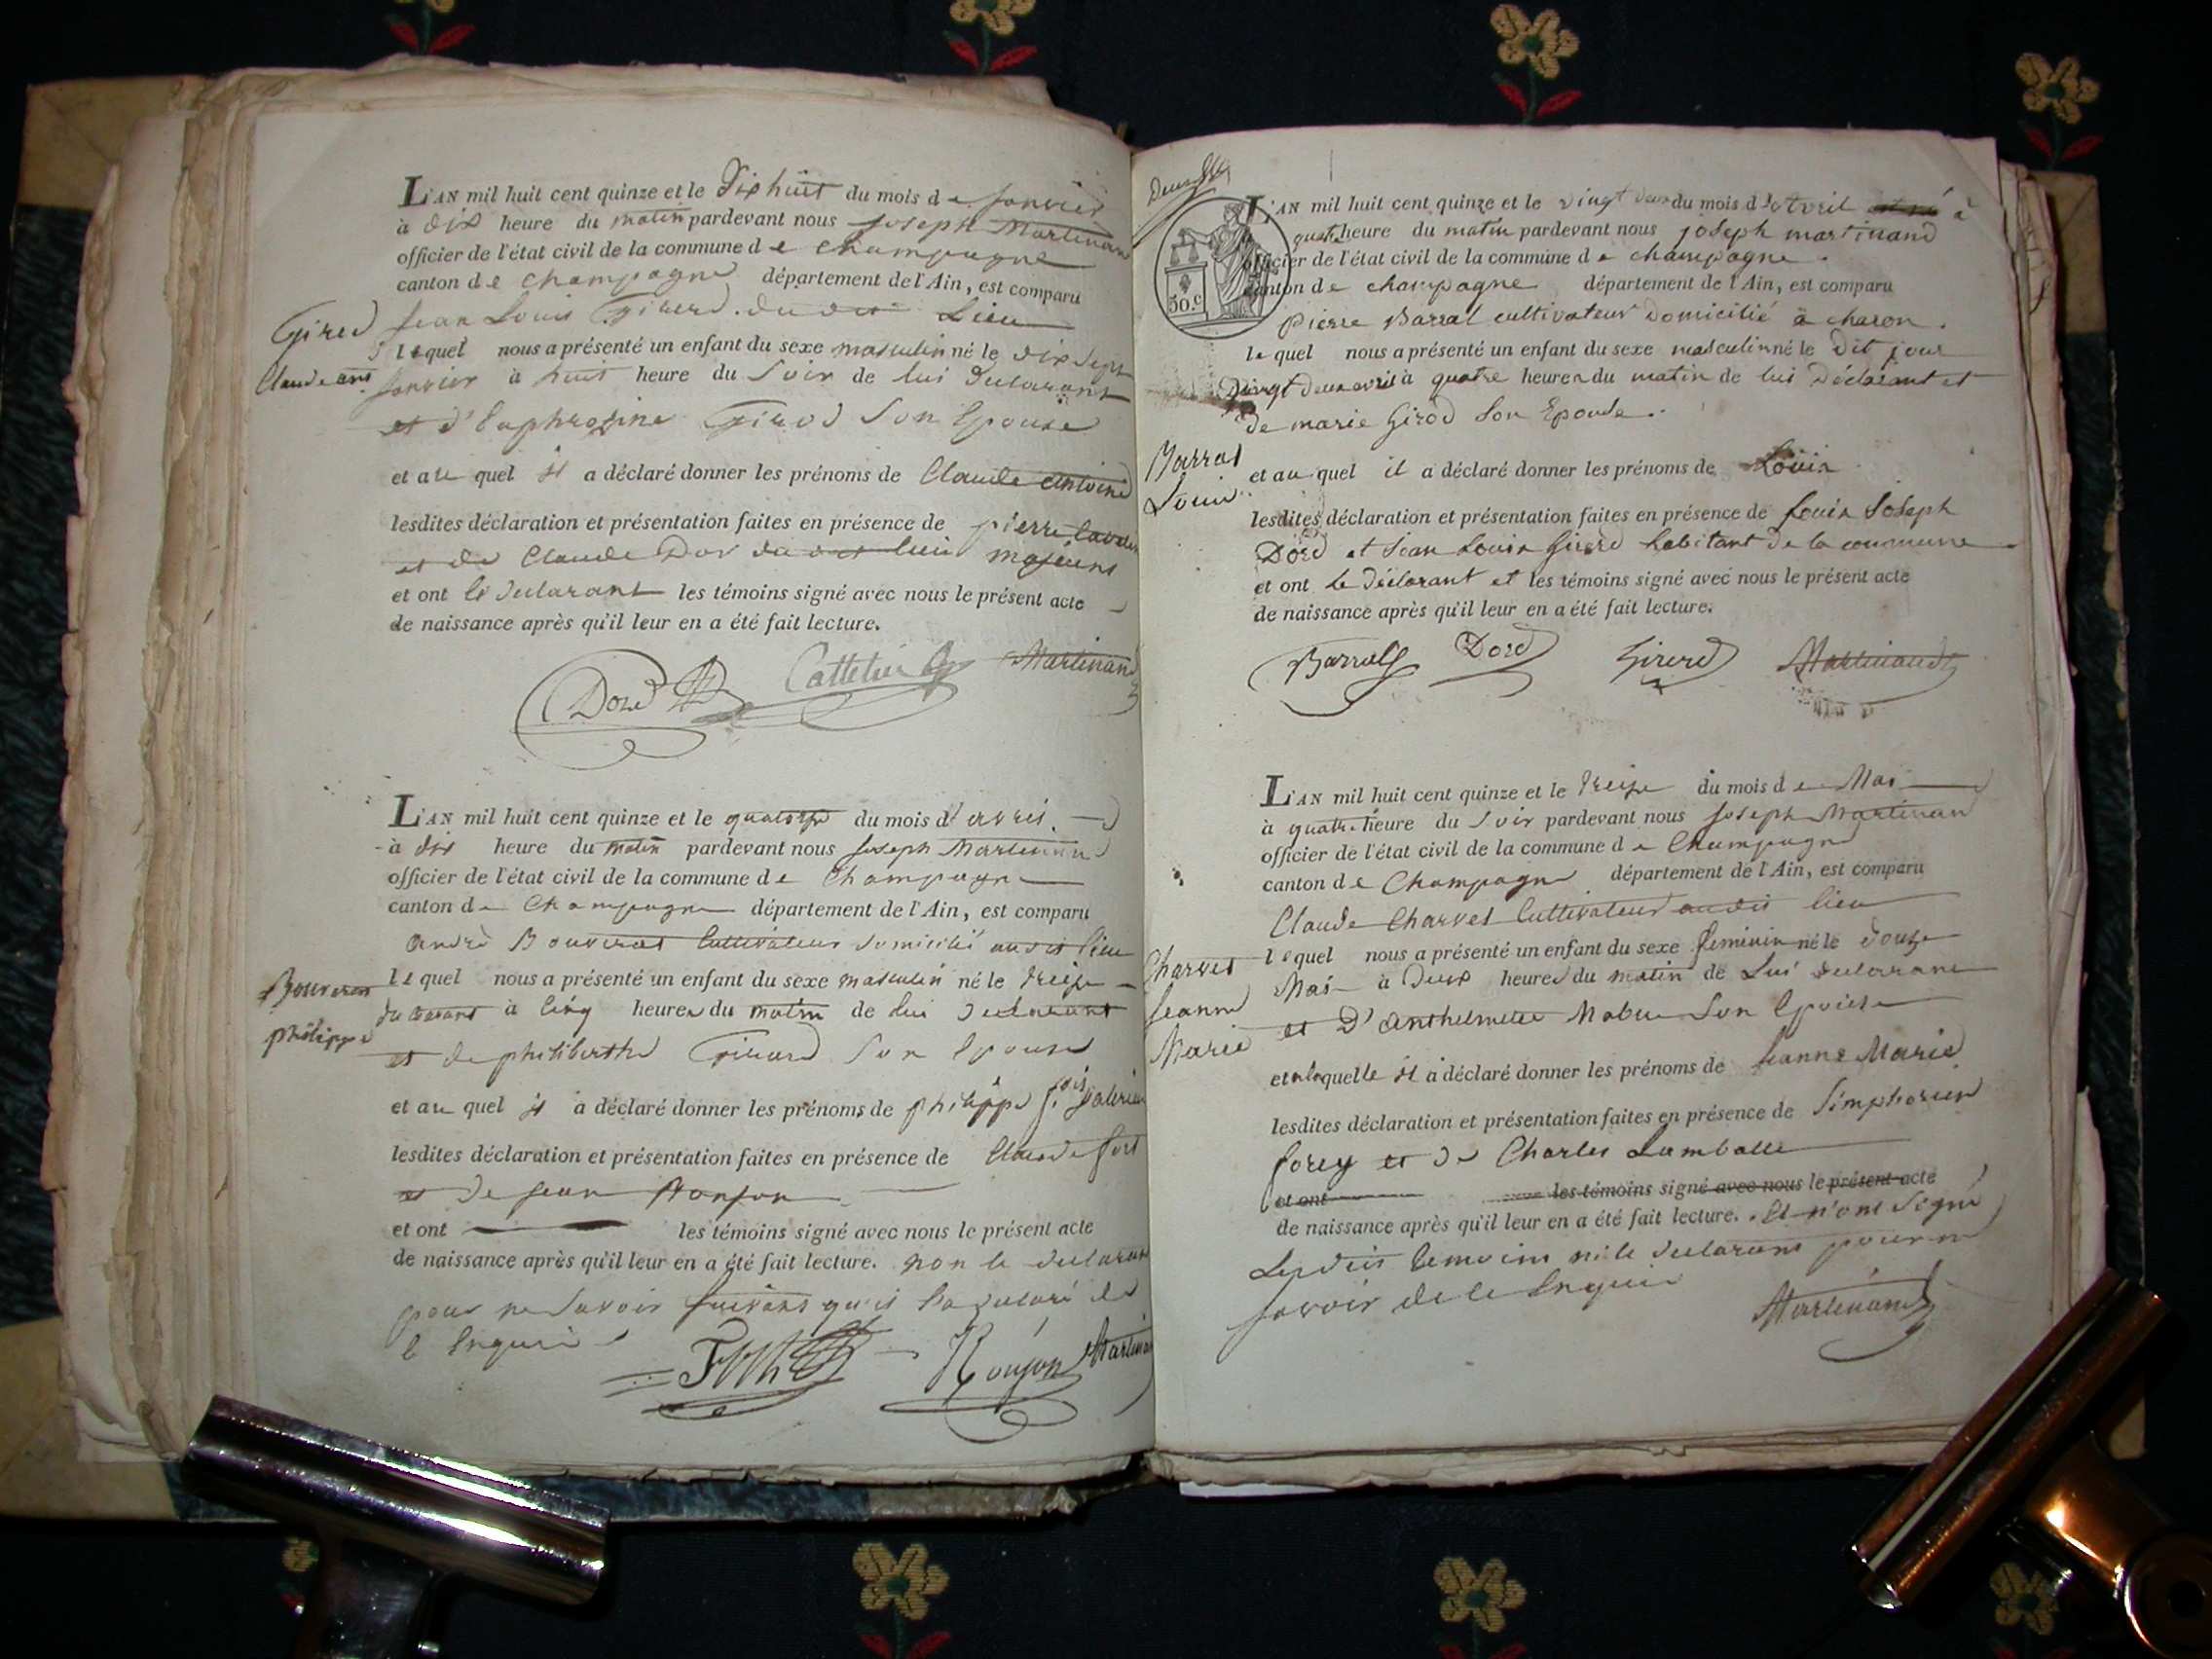 L'AN mil huit cent quinze et le Dix huit du mois de Janvier
à dix heure du matin pardevant nous Joseph Martinan
officier de l'état civil de la commune de Champagne
canton de Champagne département de l'Ain, est comparu
Jean Louis Girerd du dit Lieu
Girerd
Claude ant
lequel nous a présenté un enfant du sexe masculin né le dix sept
Janvier à huit heure du Soir de lui Declarant
et d'Euphrosine Girod Son Epouse
et au quel il a déclaré donner les prénoms de Claude Antoine
lesdites déclaration et présentation faites en présence de pierre
et de Claude Dor du dit lieu majeurs
et ont le Declarant les témoins signé avec nous le présent acte
de naissance après qu'il leur en a été fait lecture.
Dord Martinand
L'AN mil huit cent quinze et le quatorze du mois d'avril
à dix heure du matin pardevant nous Joseph Martinan
officier de l'état civil de la commune de Champagne
canton de Champagne département de l'Ain, est comparu
andré Bouveras Cultivateur domicilié au dit lieu
Bouveras
philippe
lequel nous a présenté un enfant du sexe masculin né le treize
du courant à cinq heures du matin de lui declarant
et de philiberthe Girard Son Epouse
et au quel il a déclaré donner les prénoms de philippe f.ois Valerien
lesdites déclaration et présentation faites en présence de Claude fort
et de Jean Ronjon
et ont les témoins signé avec nous le présent acte
de naissance après qu'il leur en a été fait lecture. non le declarant
pour ne Savoir suivant qu'il l'a declaré de
le Enquis
Ronjon Martinan
L'AN mil huit cent quinze et le vingt deux du mois d'Avril à
quatre heure du matin pardevant nous joseph martinand
officier de l'état civil de la commune de champagne.
canton de champagne département de l'Ain, est comparu
50.c
pierre Barral cultivateur Domicilié à charon.
lequel nous a présenté un enfant du sexe masculin né le Dit jour
vingt deux avril à quatre heures du matin de lui Déclarant et
de marie Girod Son Epouse.
Barral
Louis
et au quel il a déclaré donner les prénoms de Louis
lesdites déclaration et présentation faites en présence de Louis Joseph
Dord et Jean Louis Girerd habitant de la commune
et ont le Déclarant et les témoins signé avec nous le présent acte
de naissance après qu'il leur en a été fait lecture.
Barral Dord Girerd Martinand
L'AN mil huit cent quinze et le treize du mois de Mai
à quatre heure du Soir pardevant nous Joseph Martinan
officier de l'état civil de la commune de Champagne
canton de Champagne département de l'Ain, est comparu
Claude Charvet Cultivateur au dit lieu
Charvet
Jeanne
Marie
lequel nous a présenté un enfant du sexe feminin né le Douze
Mai à Deux heures du matin de Lui declarant
et D'anthelmette Mabue Son Epouse
et a laquelle il a déclaré donner les prénoms de Jeanne Marie
lesdites déclaration et présentation faites en présence de Simphorien
forey et de Charles Lamballe
et ont les témoins signé avec nous le présent acte
de naissance après qu'il leur en a été fait lecture. Et n'ont Signé
Lesdits temoins ni le declarant pour ne
savoir de le Enquis
Martinand